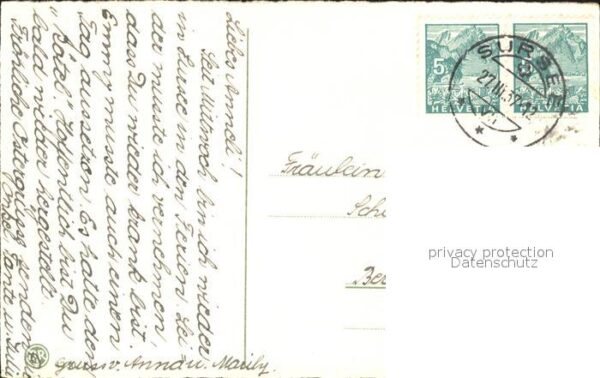 Liebes Anneli!
Seit Mittwoch bin ich wieder
in Luce in den Ferien. Sei
der musste ich vernehmen
dass Du wieder krank bist.
Emmy musste auch einen
Tag aussezen. Es hatte den
"Pätel". Hofentlich bist Du
bald wieder hergestellt.
Fröhliche Ostergrüsse senden
Onkel Tante u. Julie
Gruss v. Annau. Marily.
SURSEE
5
HELVETIA
HELVETIA
Fräulein
Sch
Ber
privacy protection
Datenschutz